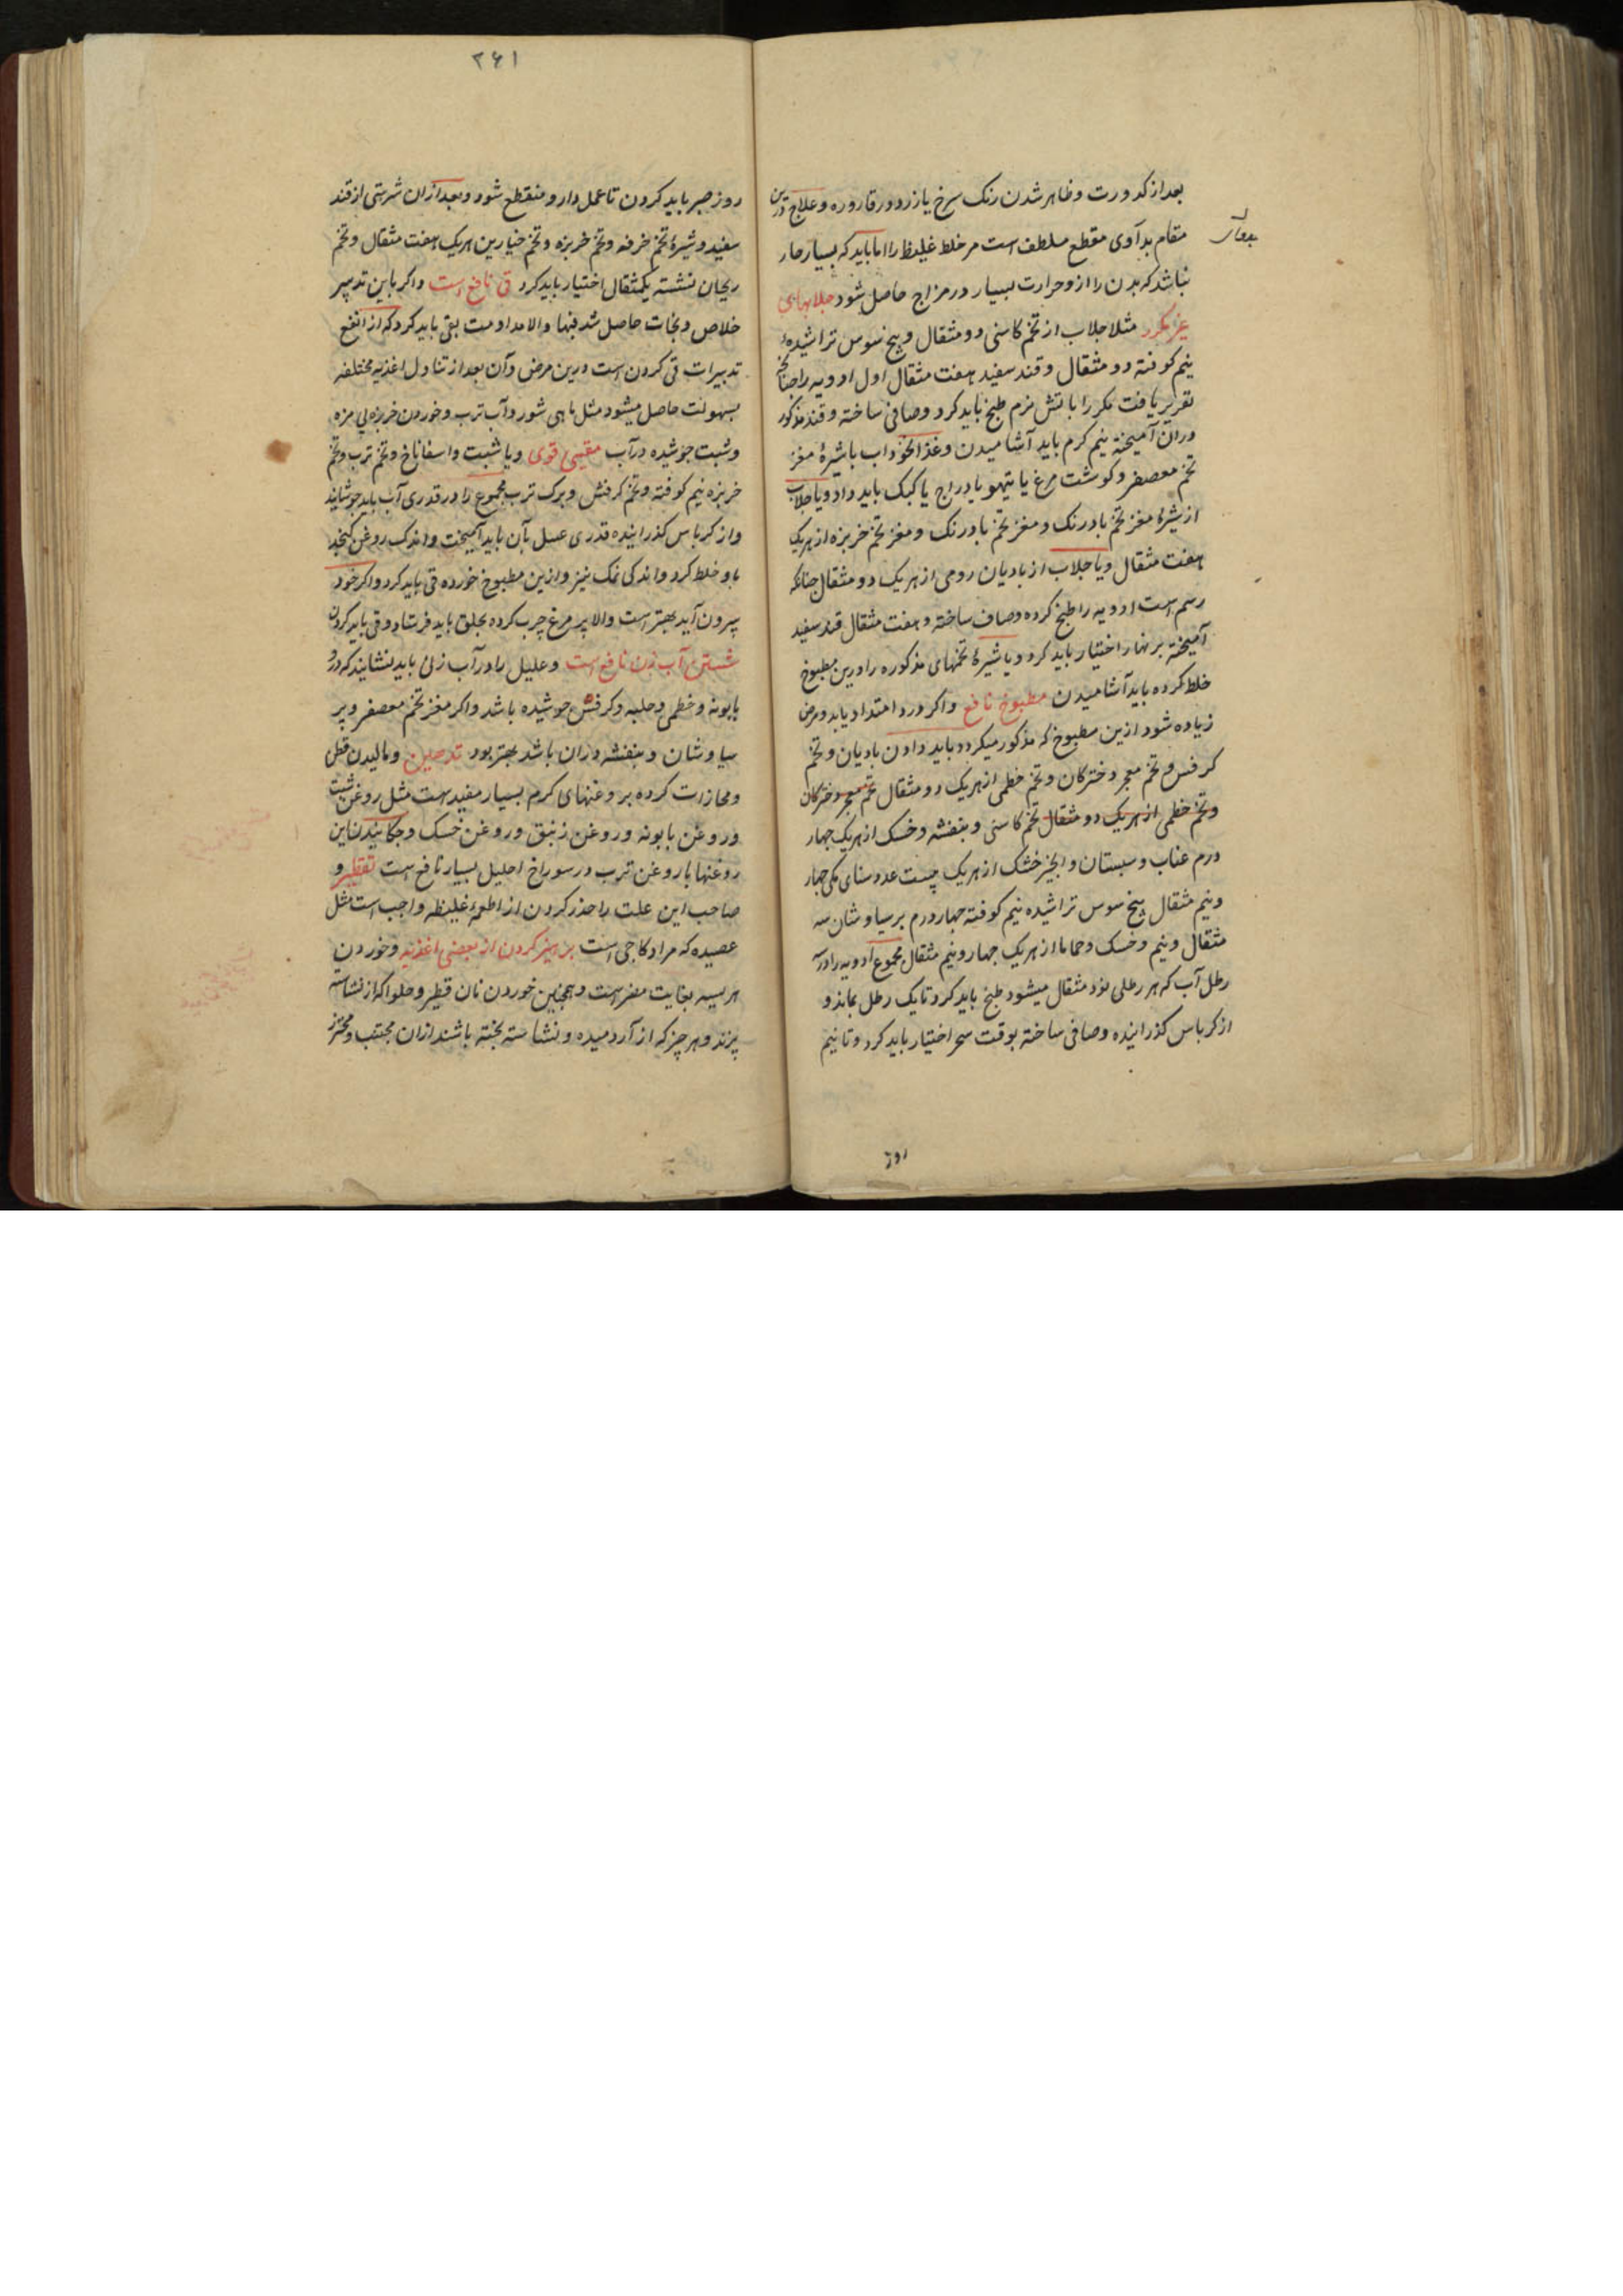 بعد از کدورت و ظاهر شدن رنک سرخ یا زرد در قاروره و علاج درین
مقام بدآوی مقطع ملطف است مر خلط غلیظ را اما باید که بسیار حار
نباشد که بدن را از و حرارت بسیار در مزاج حاصل شود جلابهای
مثلا جلاب از تخم کاسنی دو مثقال و بیخ سوس تراشیده
نیم کوفته دو مثقال و قند سفید هفت مثقال اول ادویه را چنانچه
تقریر یافت مکرر با آتش نرم طبخ باید کرد و صافی ساخته و قند مذکور
دران آمیخته نیم کرم باید آشامیدن و غذا نخوداب با شیرۀ مغز
تخم معصفر و کوشت مرغ یا تیهو یا دراج یا کبک باید داد و یا جلاب
از شیرۀ مغز تخم بادرنک و مغز تخم بادرنک و مغز تخم خربزه از هریک
هفت مثقال و یا جلاب از بادیان رومی از هریک دو مثقال چنانکه
رسم است ادویه را طبخ کرده و صاف ساخته و هفت مثقال قند سفید
آمیخته بر نهار اختیار باید کرد و یا شیرۀ تخمهای مذکوره را درین مطبوخ
خلط کرده باید آشامیدن مطبوخ نافع و اکر درد امتداد یابد و مرض
زیاده شود ازین مطبوخ که مذکور میکردد باید دادن بادیان و تخم
کرفس و تخم معجر دخترکان و تخم خطمی از هریک دو مثقال تخم معجر دخترکان
و تخم خطمی از هریک دو مثقال تخم کاسنی و بنفشه و خسک از هریک چهار
درم عناب و سبستان و انجیر خشک از هریک بیست عدد سنای مکی چهار
و نیم مثقال بیخ سوس تراشیده نیم کوفته چهار درم برسیاوشان سه
مثقال و نیم و خسک و حماما از هریک چهار و نیم مثقال مجموع ادویه را در سه
رطل آب که هر رطلی نود مثقال میشود طبخ باید کرد تا یک رطل بماند و
از کرباس کذرانیده و صافی ساخته بوقت سحر اختیار باید کرد و تا نیم
روز
۲۶۱
روز صبر باید کردن تا عمل دارو منقطع شود و بعد ازان شربتی از قند
سفید و شیرۀ تخم خرفه و تخم خربزه و تخم خیارین هریک هفت مثقال و تخم
ریحان نشسته یکمثقال اختیار باید کرد قی نافع است و اکر باین تدبیر
خلاص و نجات حاصل شد فبها و الا مداومت بقی باید کرد که از انفع
تدبیرات قی کردن است درین مرض و آن بعد از تناول اغذیه مختلفه
بسهولت حاصل میشود مثل ماهی شور و آب ترب و خوردن خربزه بی مزه
و شبت جوشیده در آب مقیی قوی و یا شبت و اسفاناخ و تخم ترب و تخم
خربزه نیم کوفته و تخم کرفش و برک ترب مجموع را در قدری آب باید جوشانید
و از کرباس کذرانیده قدری عسل بآن باید آمیخت و اندک روغن کنجد
باو خلط کرد و اندکی نمک نیز و ازین مطبوخ خورده قی باید کرد و اکر خود
بیرون آید بهتر است و الا پر مرغ چرب کرده بحلق باید فرستاد و قی باید کردن
شستن آب زن نافع است و علیل را در آب زن باید نشانید که درو
بابونه و خطمی و حلبه و کرفش جوشیده باشد و اکر مغز تخم معصفر و پر
سیاوشان و بنفشه دران باشد بهتر بود تدهین و مالیدن قطن
و محازات کرده بروغنهای کرم بسیار مفیدست مثل روغن شبت
و روغن بابونه و روغن زنبق و روغن خسک و چکانیدن این
روغنها با روغن ترب در سوراخ احلیل بسیار نافع است تقطیر و
صاحب این علت را حذر کردن از اطعمه غلیظه واجب است مثل
عصیده که مراد کاجی است پرهیز کردن از بعضی اغذیه و خوردن
هریسه بغایت مضر است و همچنین خوردن نان فطیر و حلوا که از نشاسته
پزند و هر چیز که از آرد میده و نشاسته پخته باشند ازان مجتنب و محترز